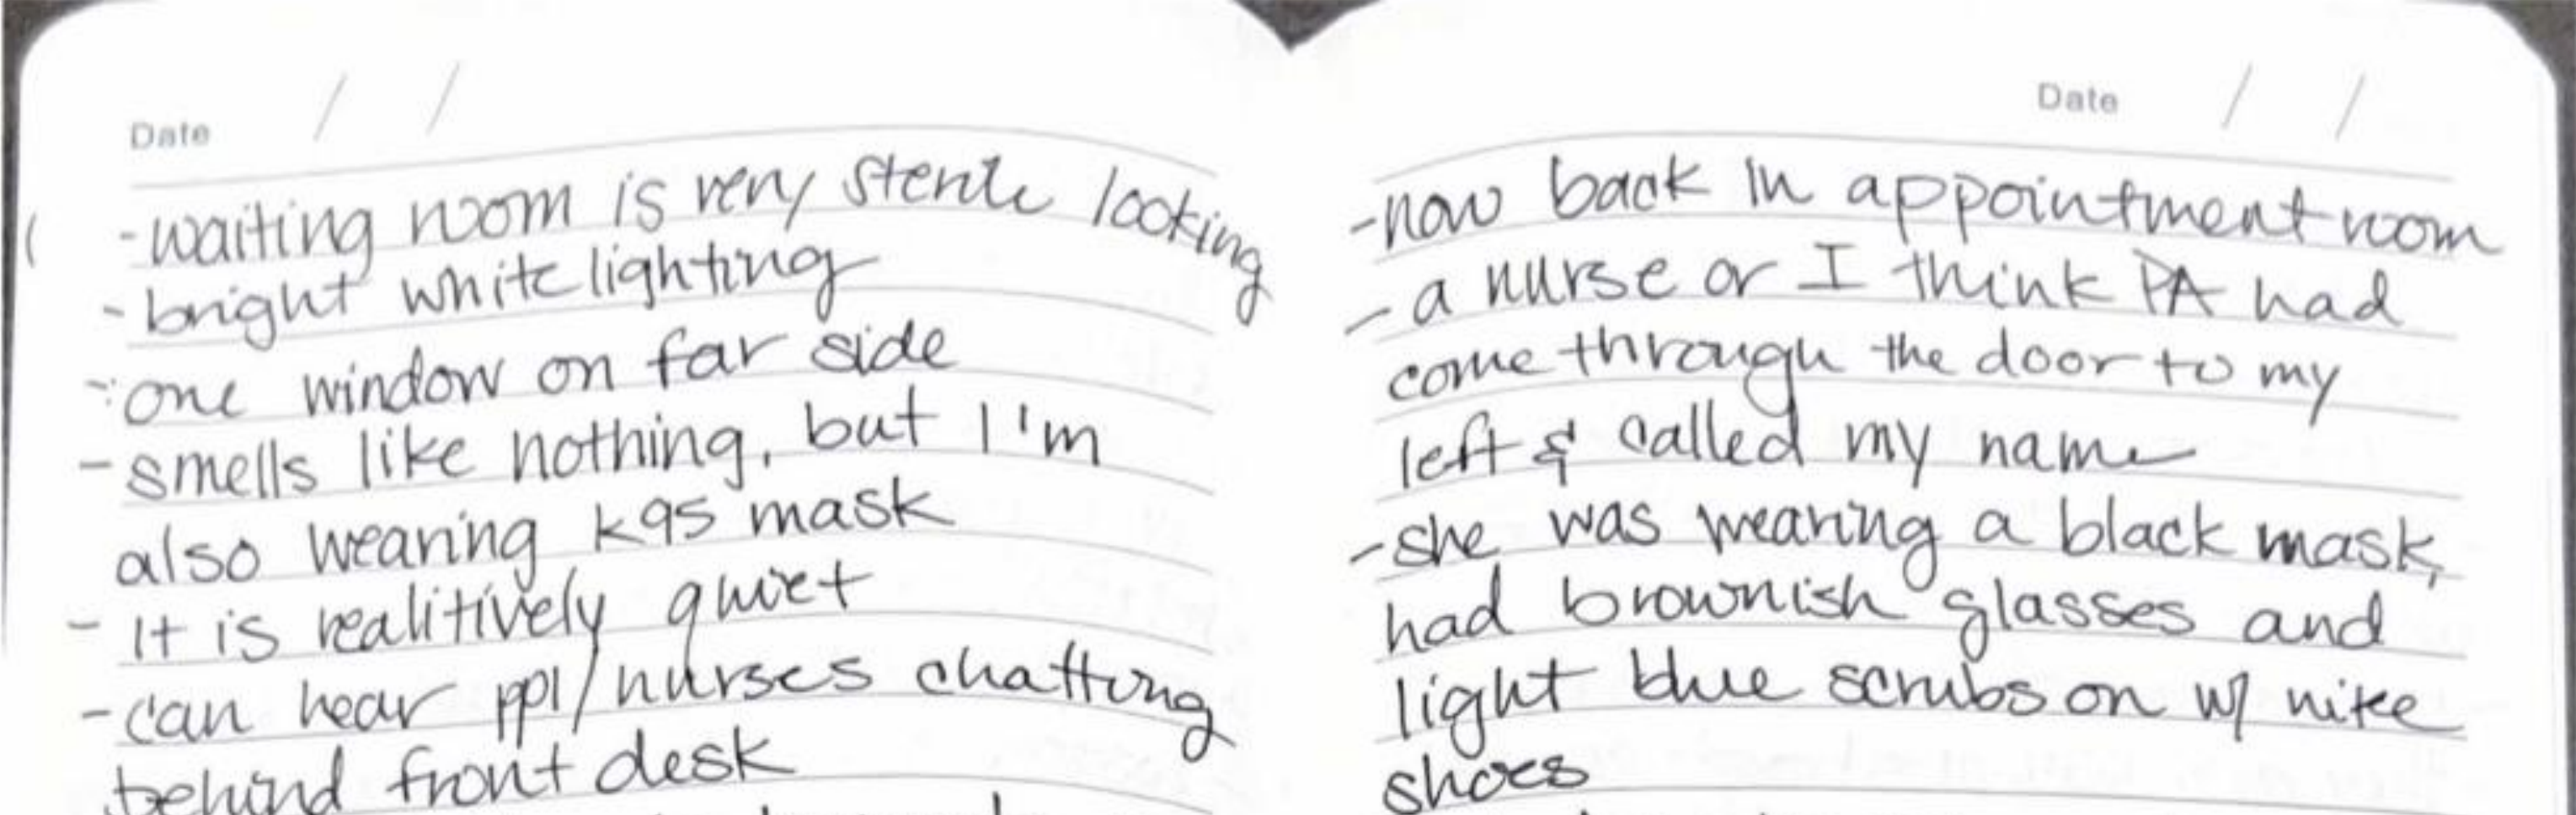 Date / /
- waiting room is very sterile looking
- bright white lighting
- one window on far side
- smells like nothing, but I'm
also wearing k95 mask
- It is realitively quiet
- can hear ppl/nurses chatting
behind front desk
Date / /
- now back in appointment room
- a nurse or I think PA had
come through the door to my
left & called my name
- she was wearing a black mask,
had brownish glasses and
light blue scrubs on w/ nike
shoes